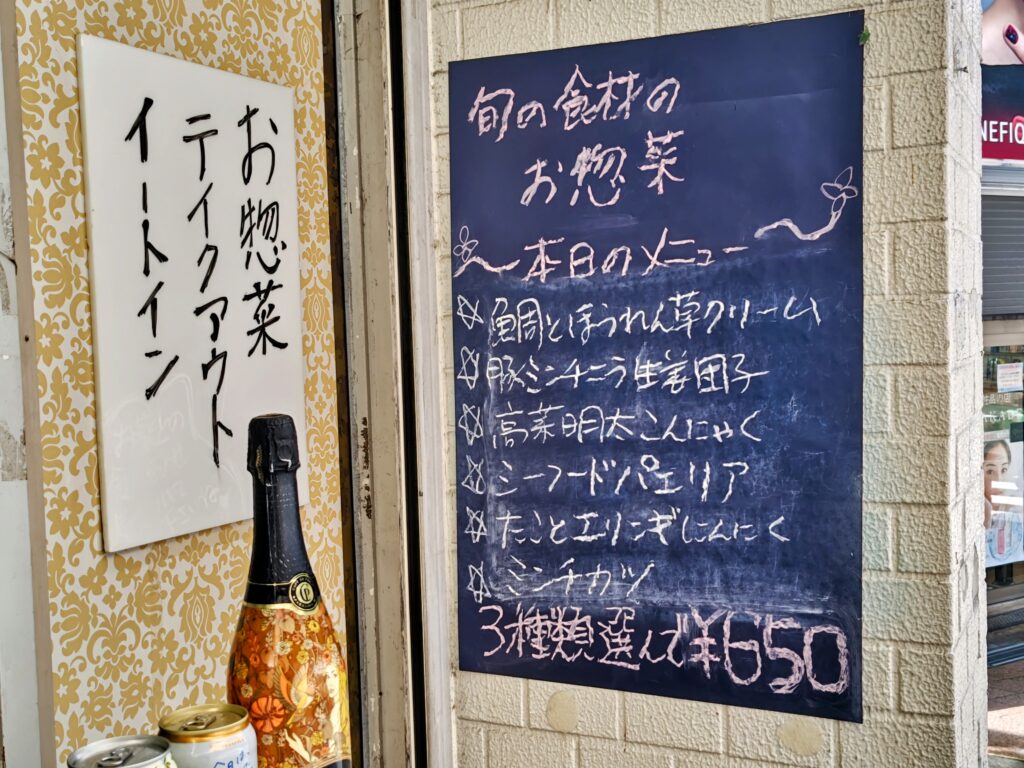 お惣菜
テイクアウト
イートイン
旬の食材の
お惣菜
本日のメニュー
☆鯛とほうれん草クリーム
☆豚ミンチニラ生姜団子
☆高菜明太こんにゃく
☆シーフードパエリア
☆たことエリンギにんにく
☆ミンチカツ
3種類選んで¥650
NEFIQ